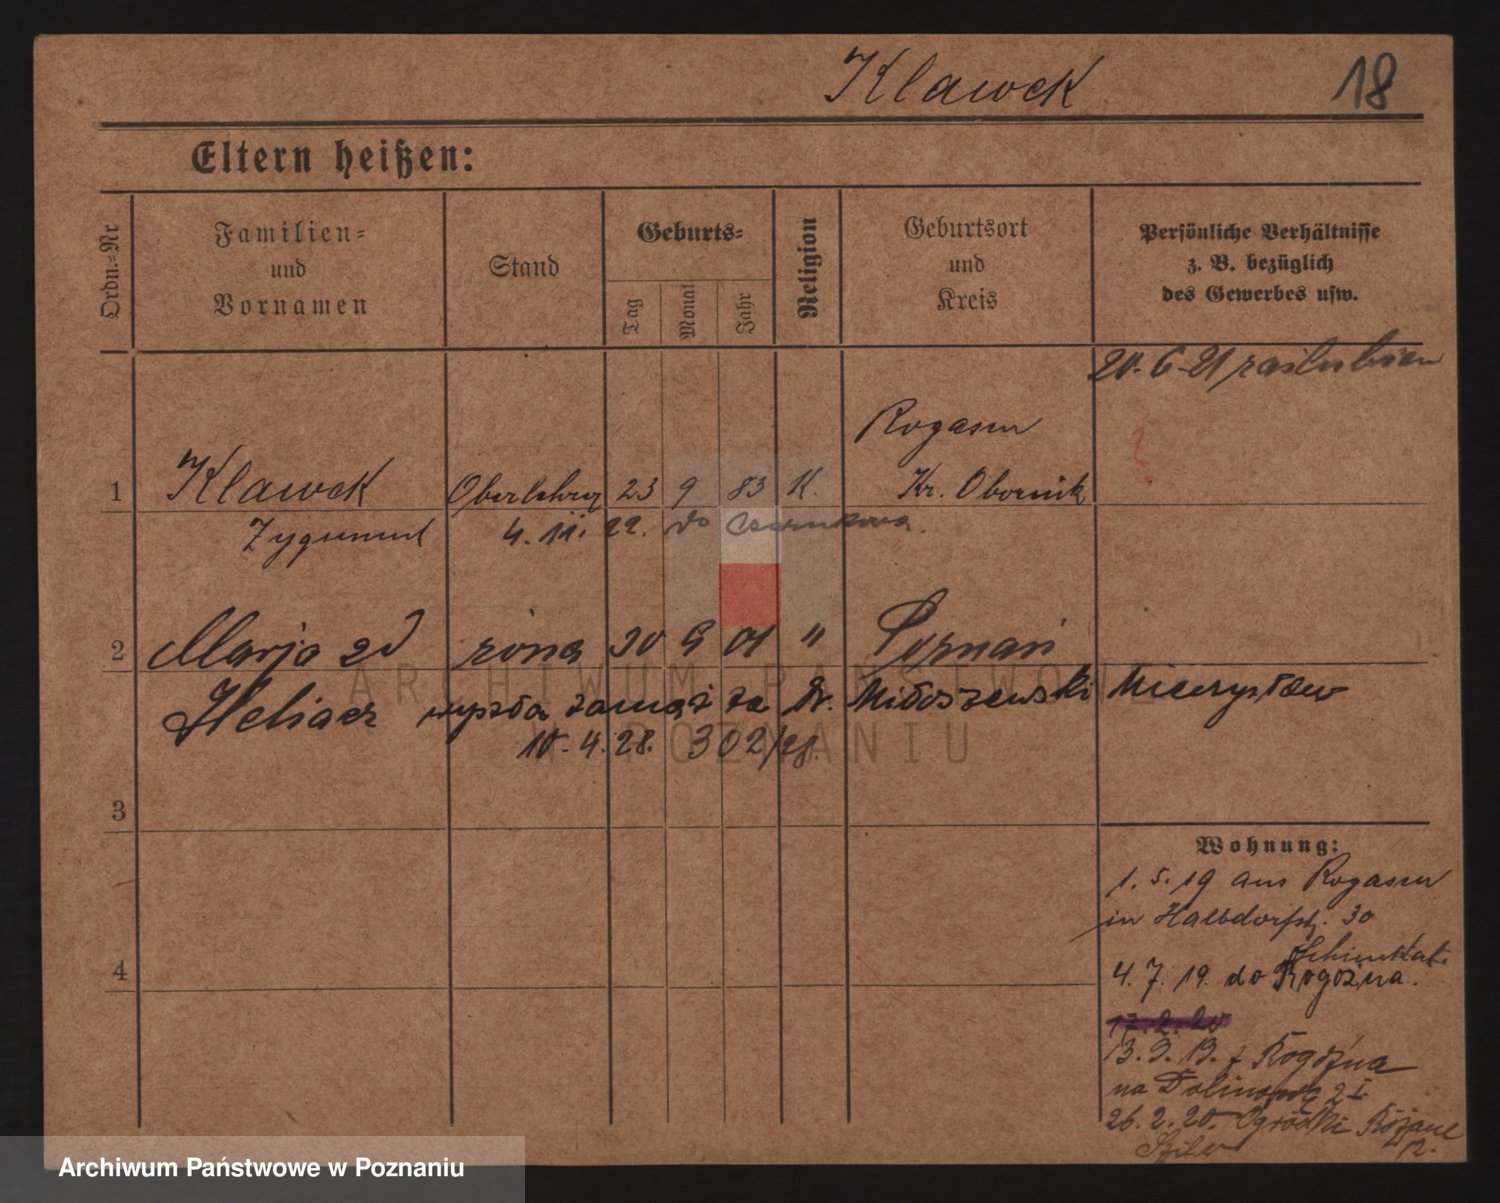 Klawek 18
Eltern heißen:
Ordn.-Nr
Familien-
und
Vornamen
Stand
Geburts-
Tag
Monat
Jahr
Religion
Geburtsort
und
Kreis
Persönliche Verhältnisse
z. B. bezüglich
des Gewerbes usw.
20.6.21 zaślubion
?
Rogasen
1 Klawek Oberlehrer 23 9 83 K. Kr. Obornik
Zygmunt 4.11.22. do Czarnkowa.
2 Marja zd żona 30 9 01 " Poznań
wyszła zamąż za Dr. Miłoszewski Mieczysław
10.4.28. 302/28.
3
4
Wohnung:
1.5.19 aus Rogasen
in Halbdorfstr. 30
4.7.19. do Rogoźna.
17.2.20
13.9.19. z Rogoźna
na 2 I
26.2.20. Ogródki
12.
ARCHIWUM PAŃSTWOWE
W POZNANIU
Archiwum Państwowe w Poznaniu